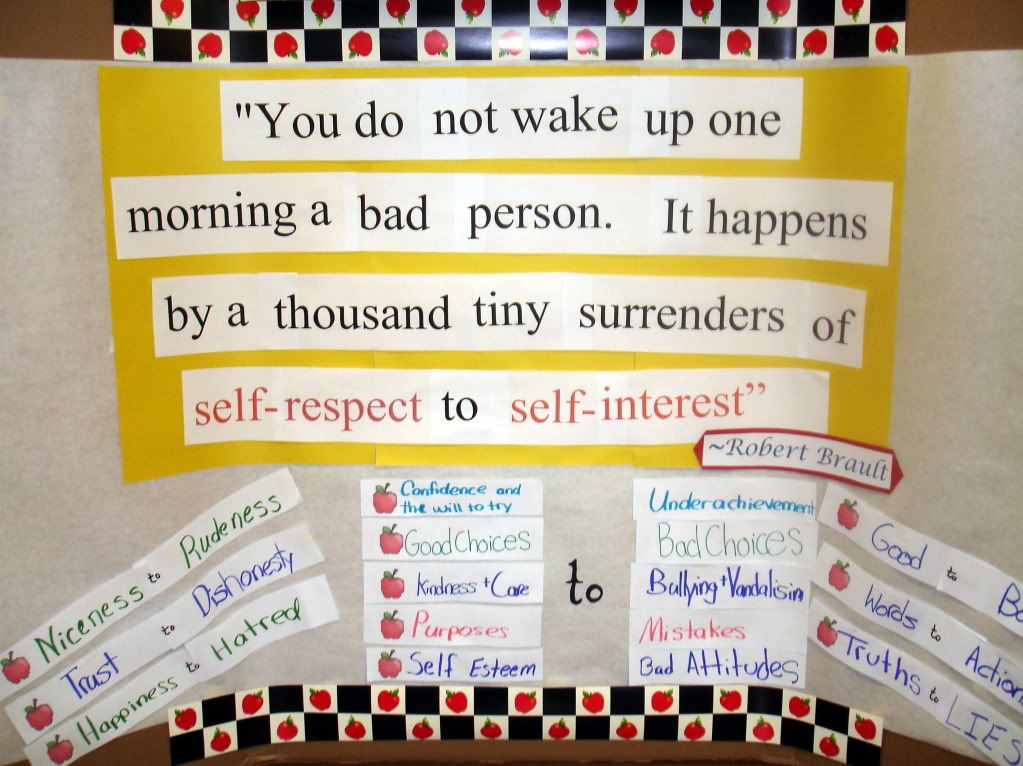 "You do not wake up one
morning a bad person. It happens
by a thousand tiny surrenders of
self-respect to self-interest”
~Robert Brault
Niceness to Rudeness
Trust to Dishonesty
Happiness to Hatred
Confidence and
the will to try
Good Choices
Kindness + Care
Purposes
Self Esteem
to
Underachievement
Bad Choices
Bullying + Vandalism
Mistakes
Bad Attitudes
Good to
Words to Action
Truths to LIES